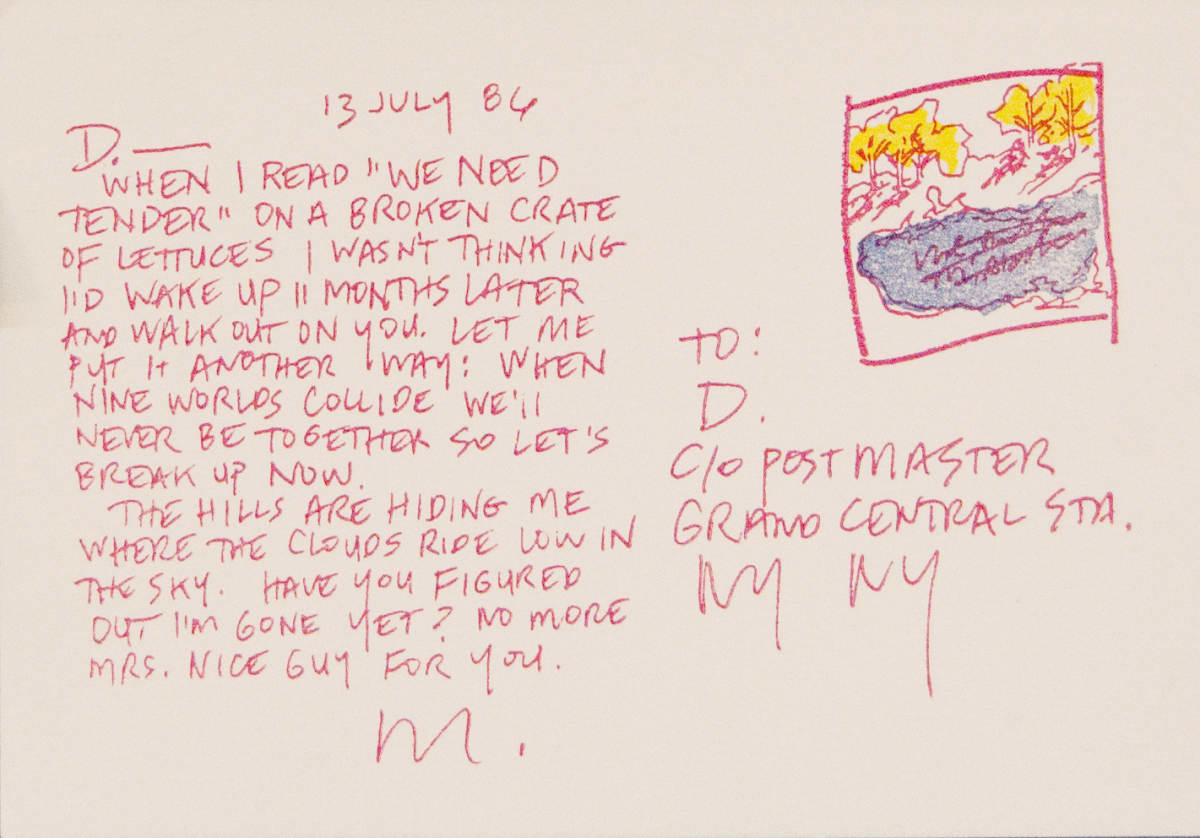 13 JULY 86
D. —
WHEN I READ "WE NEED
TENDER" ON A BROKEN CRATE
OF LETTUCES I WASN'T THINKING
I'D WAKE UP 11 MONTHS LATER
AND WALK OUT ON YOU. LET ME
PUT IT ANOTHER WAY: WHEN
NINE WORLDS COLLIDE WE'LL
NEVER BE TOGETHER SO LET'S
BREAK UP NOW.
THE HILLS ARE HIDING ME
WHERE THE CLOUDS RIDE LOW IN
THE SKY. HAVE YOU FIGURED
OUT I'M GONE YET? NO MORE
MRS. NICE GUY FOR YOU.
M.
TO:
D.
C/O POSTMASTER
GRAND CENTRAL STA.
NY NY